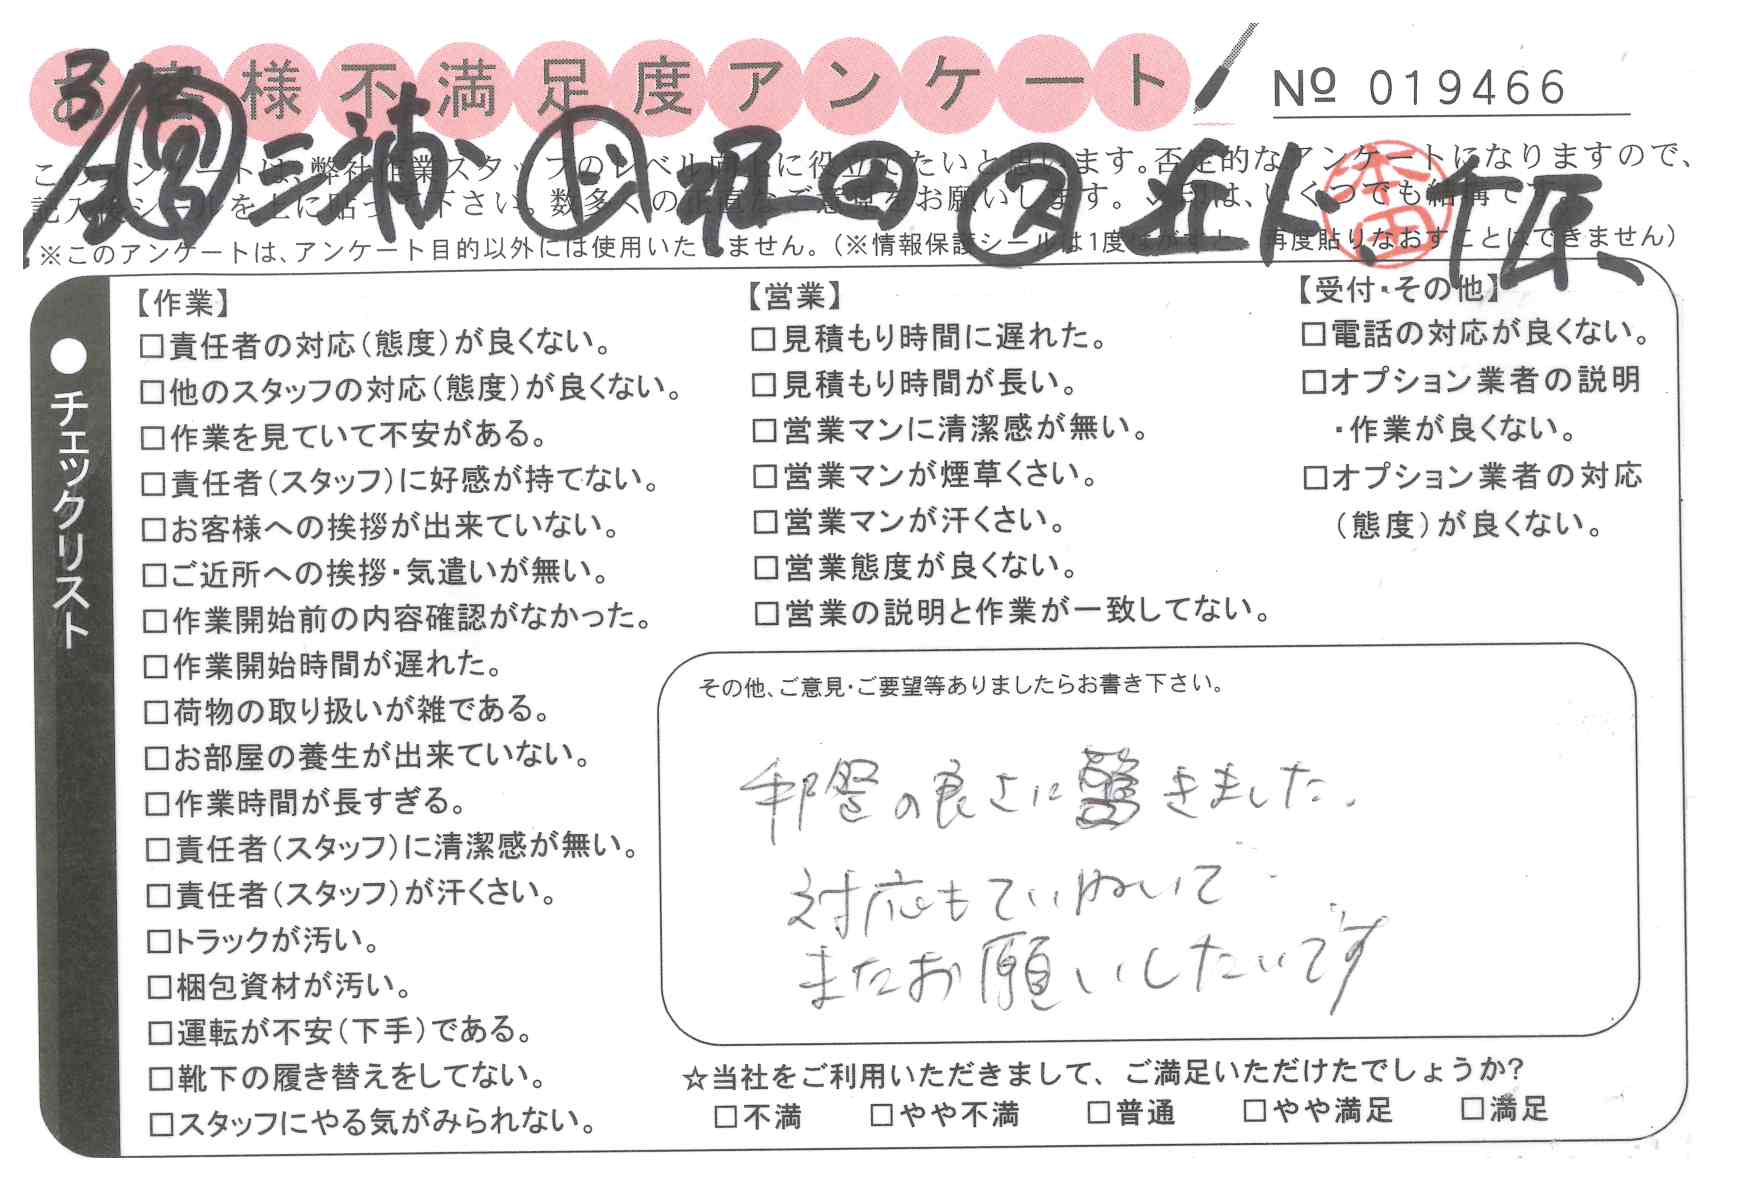 お客様不満足度アンケート
№ 019466
三浦 堀田
このアンケートは、弊社作業スタッフのレベル向上に役立てたいと思います。否定的なアンケートになりますので、
記入後シールを上に貼って下さい。数多くの正直なご意見をお願いします。〆印は、いくつでも結構です。
※このアンケートは、アンケート目的以外には使用いたしません。（※情報保護シールは1度はがすと、再度貼りなおすことはできません）
本田
●チェックリスト
【作業】
□責任者の対応（態度）が良くない。
□他のスタッフの対応（態度）が良くない。
□作業を見ていて不安がある。
□責任者（スタッフ）に好感が持てない。
□お客様への挨拶が出来ていない。
□ご近所への挨拶・気遣いが無い。
□作業開始前の内容確認がなかった。
□作業開始時間が遅れた。
□荷物の取り扱いが雑である。
□お部屋の養生が出来ていない。
□作業時間が長すぎる。
□責任者（スタッフ）に清潔感が無い。
□責任者（スタッフ）が汗くさい。
□トラックが汚い。
□梱包資材が汚い。
□運転が不安（下手）である。
□靴下の履き替えをしてない。
□スタッフにやる気がみられない。
【営業】
□見積もり時間に遅れた。
□見積もり時間が長い。
□営業マンに清潔感が無い。
□営業マンが煙草くさい。
□営業マンが汗くさい。
□営業態度が良くない。
□営業の説明と作業が一致してない。
【受付・その他】
□電話の対応が良くない。
□オプション業者の説明
・作業が良くない。
□オプション業者の対応
（態度）が良くない。
その他、ご意見・ご要望等ありましたらお書き下さい。
の良さに驚きました。
対応もていねいで
またお願いしたいです
☆当社をご利用いただきまして、ご満足いただけたでしょうか?
□不満 □やや不満 □普通 □やや満足 □満足